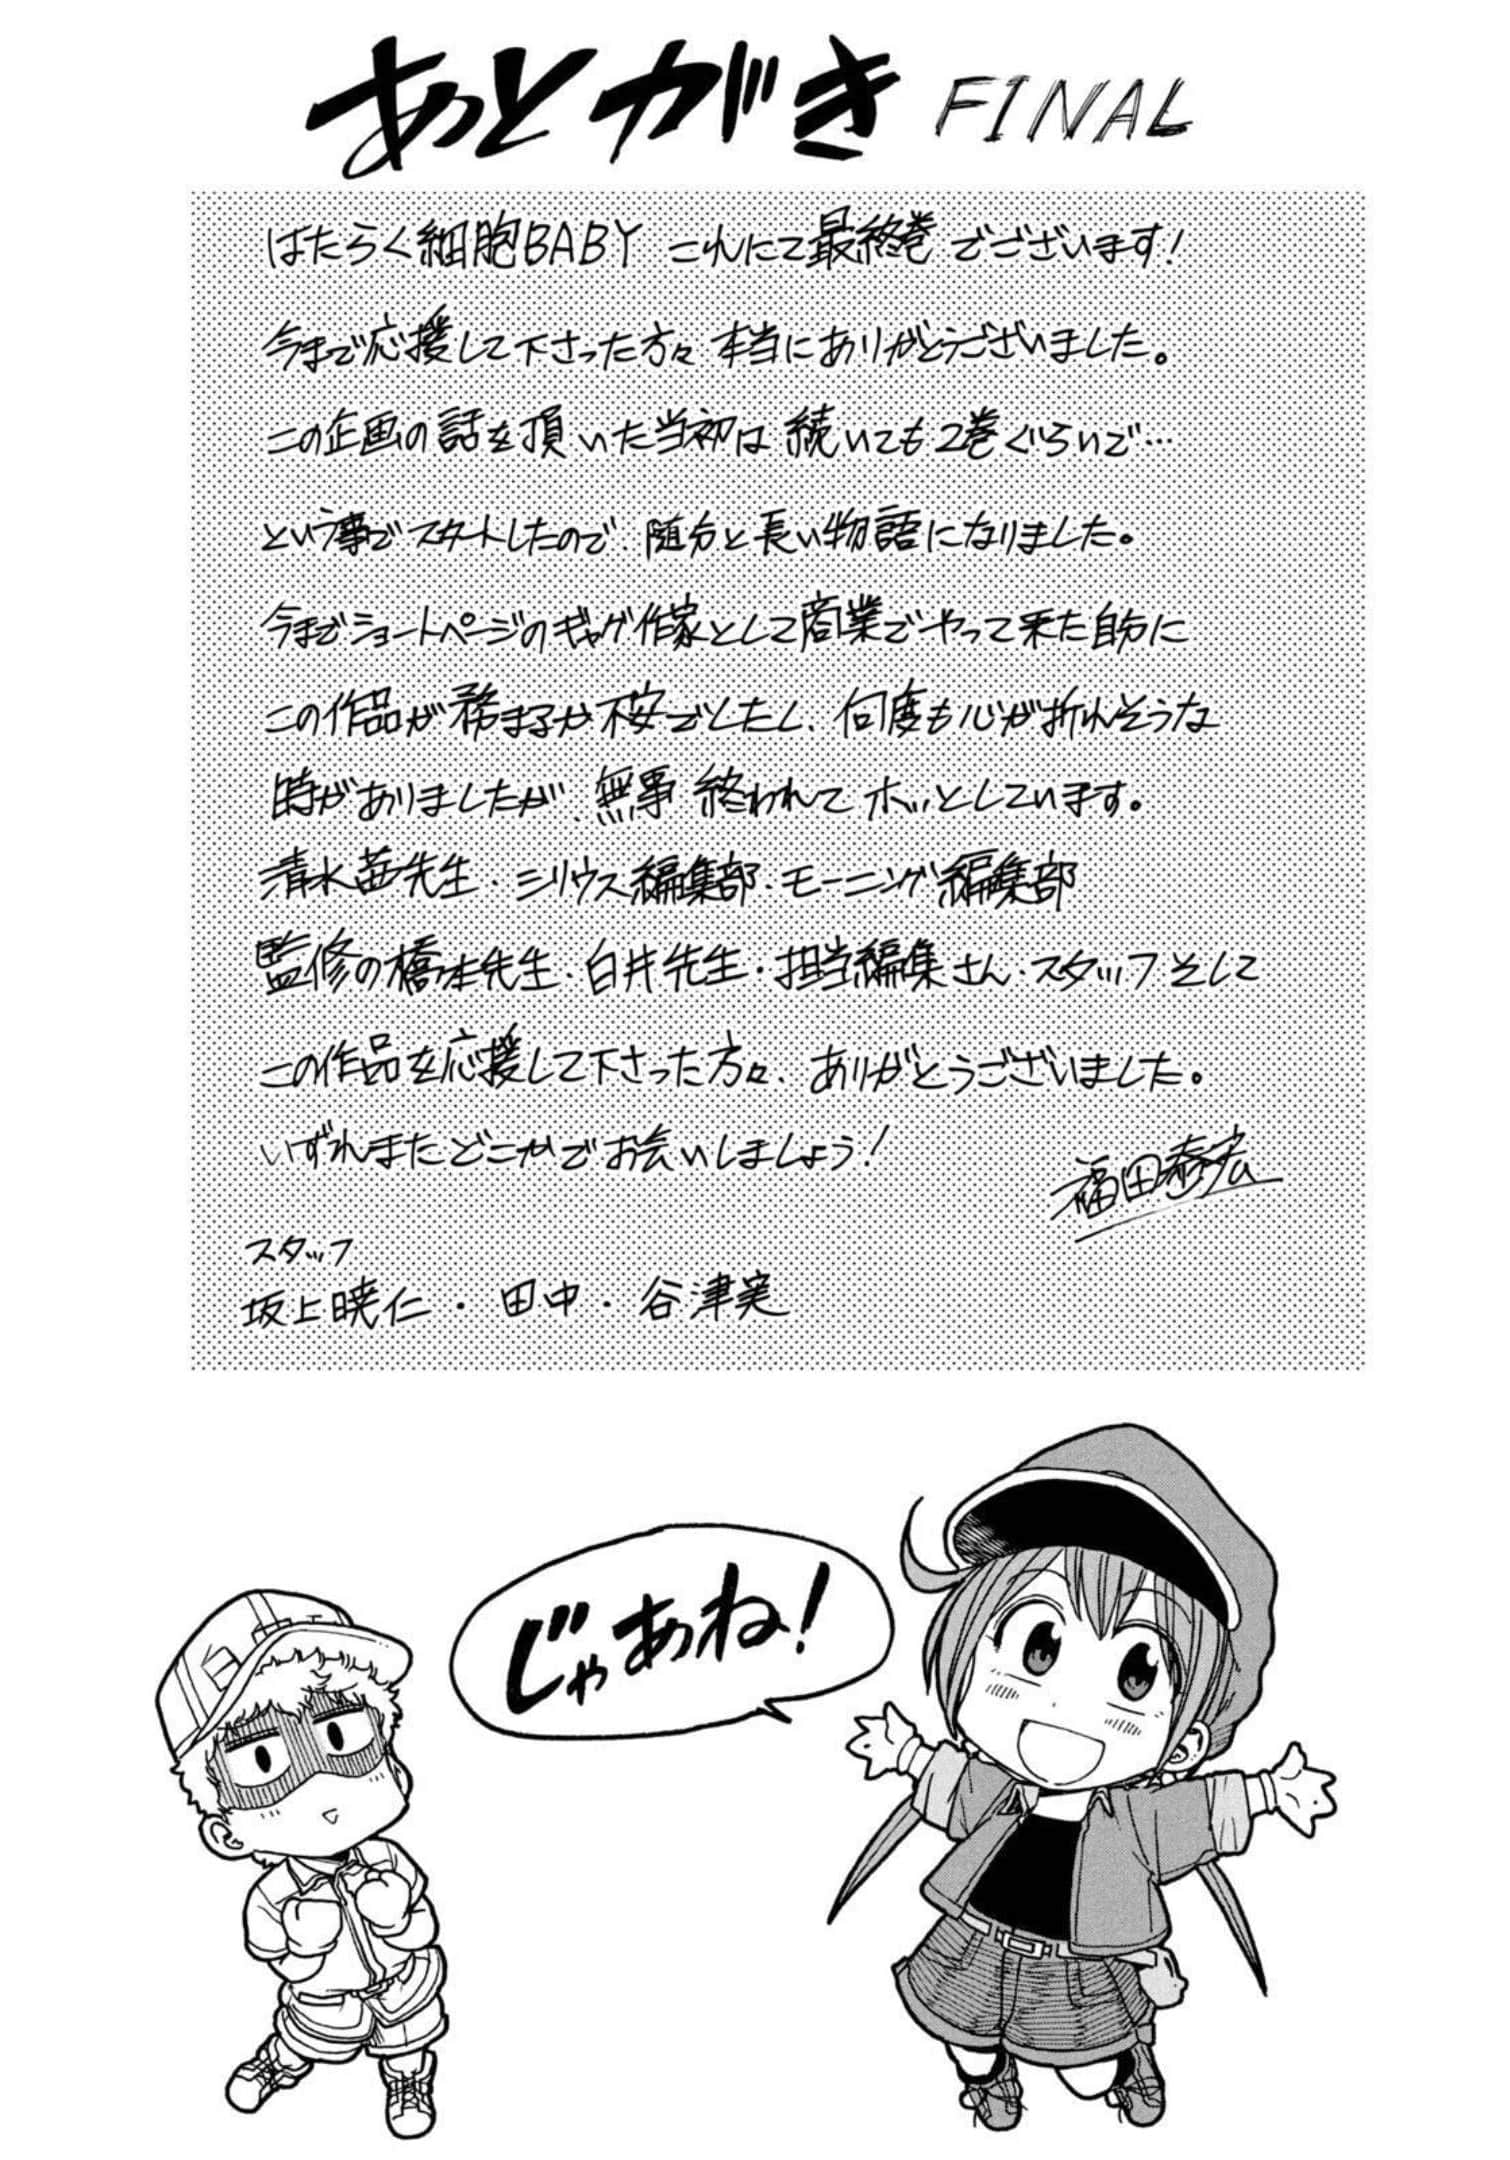 あとがき FINAL
はたらく細胞BABY これにて最終巻でございます!
今まで応援して下さった方々 本当にありがとうございました。
この企画の話を頂いた当初は続いても2巻ぐらいで…
という事でスタートしたので、随分と長い物語になりました。
今までショートページのギャグ作家として商業でやって来た自分に
この作品が務まるか不安でしたし、何度も心が折れそうな
時がありましたが、無事 終われてホッとしています。
清水茜先生・シリウス編集部・モーニング編集部
監修の橋本先生・白井先生・担当編集さん・スタッフそして
この作品を応援して下さった方々、ありがとうございました。
いずれまたどこかでお会いしましょう!
福田泰宏
スタッフ
坂上暁仁・田中・谷津実
じゃあね!